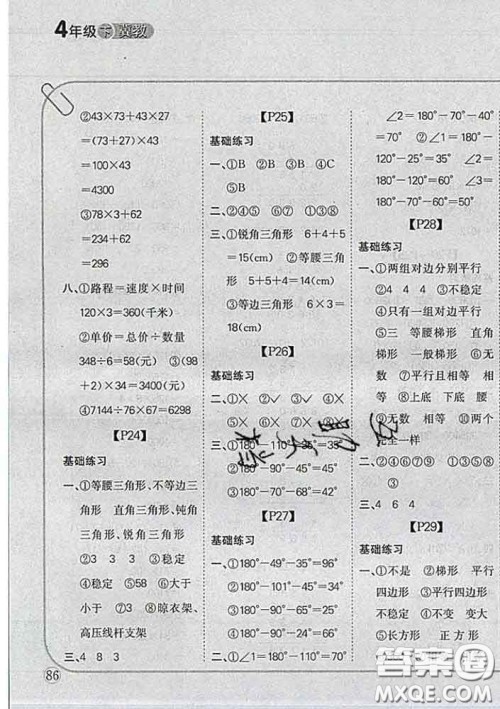 4年级 下 冀教
②43×73+43×27
=(73+27)×43
=100×43
=4300
③78×3+62
=234+62
=296
八、①路程=速度×时间
120×3=360(千米)
②单价=总价÷数量
348÷6=58(元) ③(98
+2)×34=3400(元)
④7144÷76×67=6298
【P24】
基础练习
一、①等腰三角形、不等边三
角形 直角三角形、钝角
三角形、锐角三角形
②3 3 3 ③稳定
④稳定 ⑤58 ⑥大于
小于 ⑦2 ⑧晾衣架、
高压线杆支架
三、4 8 3
86
【P25】
基础练习
一、①B ②B ③C ④C
⑤B
二、②④⑤ ⑥⑦ ①③⑧
三、①锐角三角形 6+4+5
=15(cm) ②等腰三角形
5+5+4=14(cm)
③等边三角形 6×3=
18(cm)
【P26】
基础练习
二、①× ②✓ ③✓ ④×
⑤× ⑥× ⑦× ⑧×
三、①180°-110°-35°=35°
②180°-90°-45°=45°
③180°-70°-68°=42°
【P27】
基础练习
一、①180°-49°-35°=96°
②180°-101°-45°=34°
③180°-90°-34°=56°
④180°-90°-45°=45°
二、①∠1=180°-110°=70°
∠2=180°-70°-40°
=70° ②∠1=
180°-25°=35° ③∠1=
180°-120°=60° ∠2=
180°-70°-60°=50°
【P28】
基础练习
一、①两组对边分别平行
②4 4 4 ③不稳定
④只有一组对边平行
⑤三 等腰梯形 直角
梯形 一般梯形 ⑥无
数 ⑦平行且相等 相
等 ⑧上底 下底 腰
⑨无数 相等 两个
完全一样
二、②④⑥⑦⑨ ①③⑤⑧
三、4 6 4
【P29】
基础练习
一、①不是 ②梯形 平行
四边形 ③平行四边形
不稳定 ④不变 变大
⑤长方形 正方形
答案圈
MXQE.COM